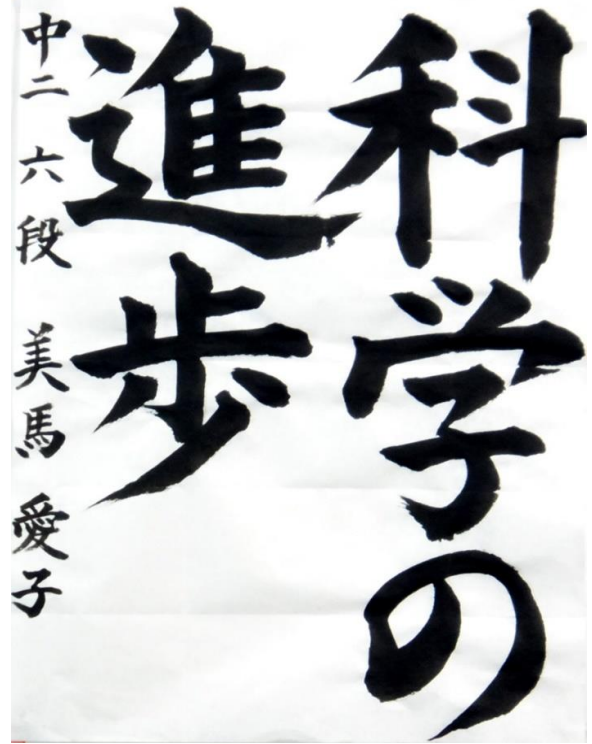 科学の
進歩
中二 六段 美馬 愛子